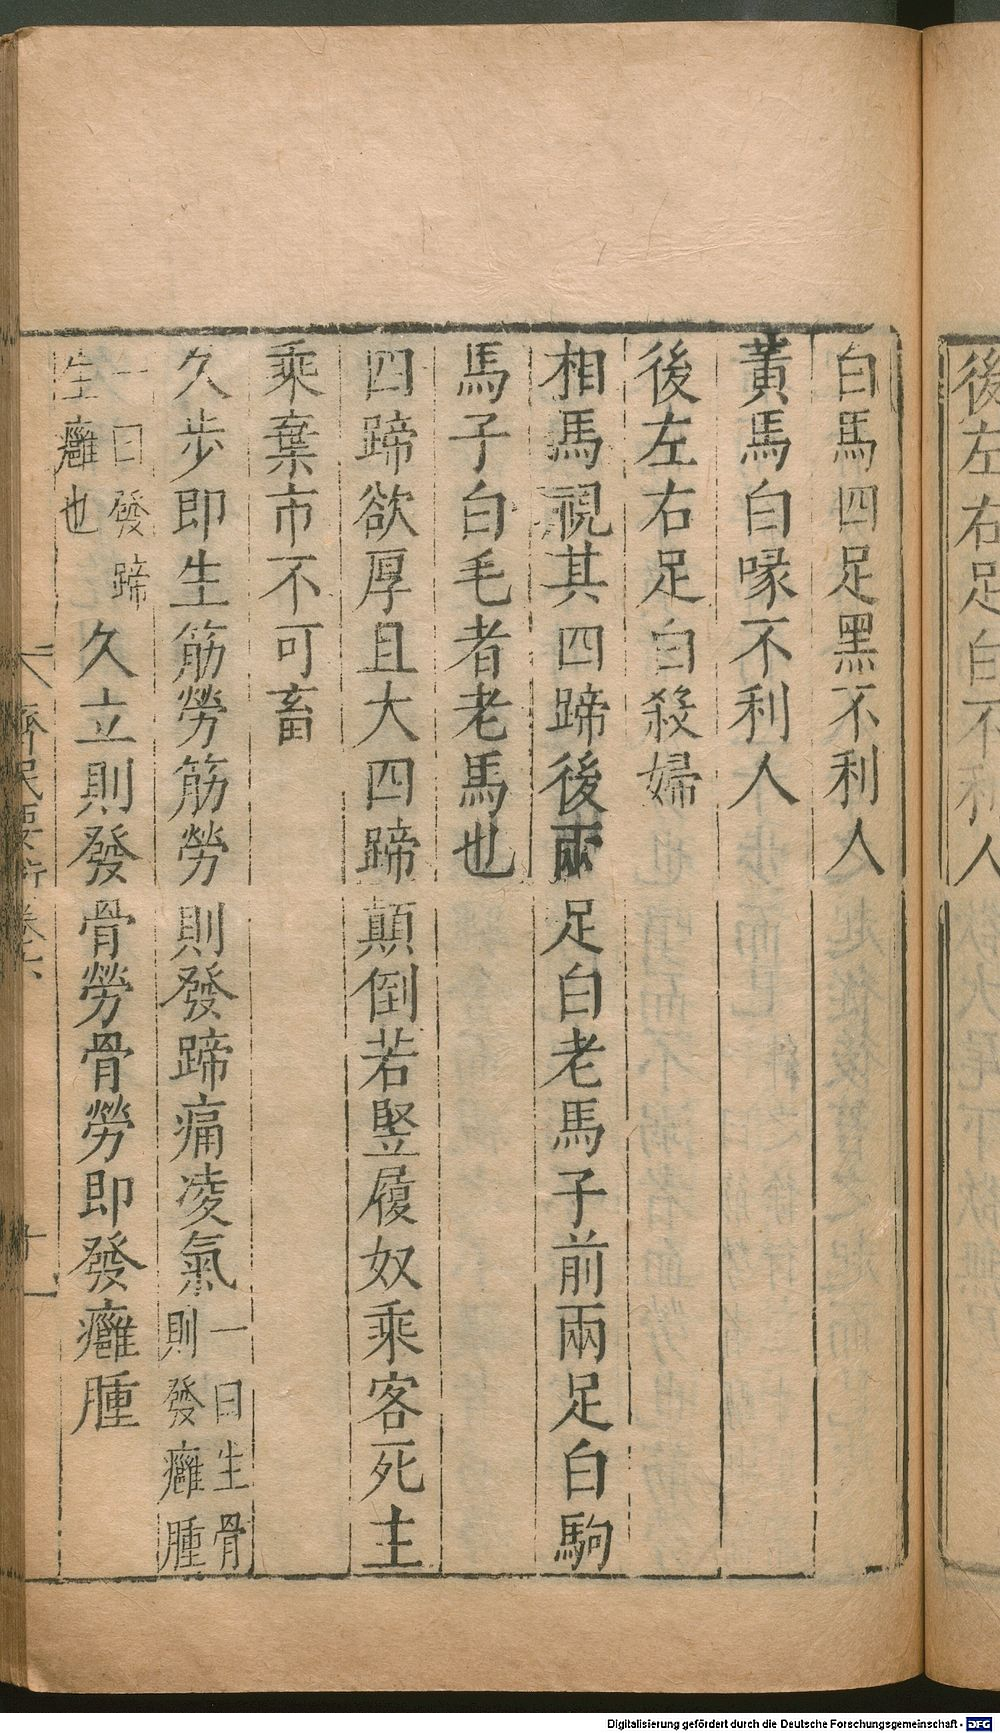 後左右足白不利人
白馬四足黑不利人
黃馬白喙不利人
後左右足白殺婦
相馬視其四蹄後兩足白老馬子前兩足白駒
馬子白毛者老馬也
四蹄欲厚且大四蹄顛倒若竪履奴乘客死主
乘棄市不可畜
久步即生筋勞筋勞則發蹄痛凌氣
一曰生骨
則發癰腫
一曰發蹄
生癰也
久立則發骨勞骨勞即發癰腫
齊民要術卷六
Digitalisierung gefördert durch die Deutsche Forschungsgemeinschaft - DFG